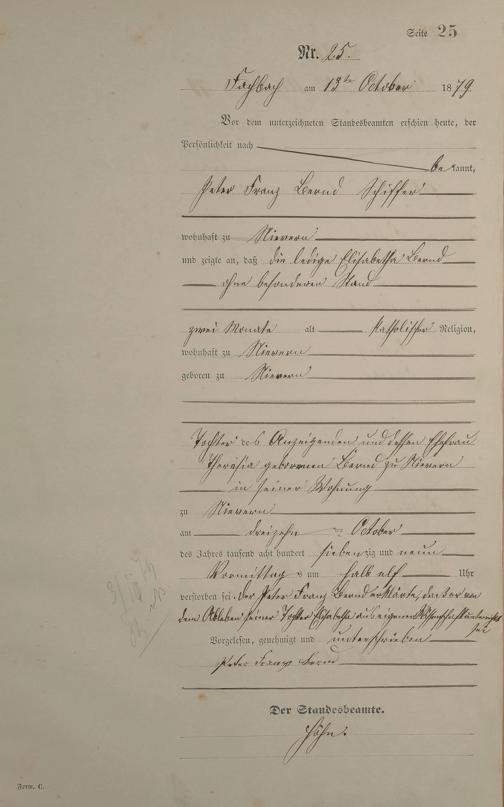 Seite 25
Nr. 25.
Fachbach am 13ten October 1879.
Vor dem unterzeichneten Standesbeamten erschien heute, der
Persönlichkeit nach
bekannt,
Peter Franz Bernd Schiffer
wohnhaft zu Nievern
und zeigte an, daß die ledige Elisabetha Bernd
ohne besonderen Stand
zwei Monate alt katholischer Religion,
wohnhaft zu Nievern
geboren zu Nievern
Tochter des Anzeigenden und dessen Ehefrau
Theresia geborenen Bernd zu Nievern
in seiner Wohnung
zu Nievern
am dreizehn ten October
des Jahres tausend acht hundert siebenzig und neun
Vormittags um halb elf Uhr
verstorben sei. Der Peter Franz Bernd erklärte, daß er von
dem Ableben seiner Tochter Elisabetha aus eigener Wissenschaft unterrichtet
sei
Vorgelesen, genehmigt und unterschrieben
Peter Franz Bernd
Der Standesbeamte.
Höhn.
Form. C.